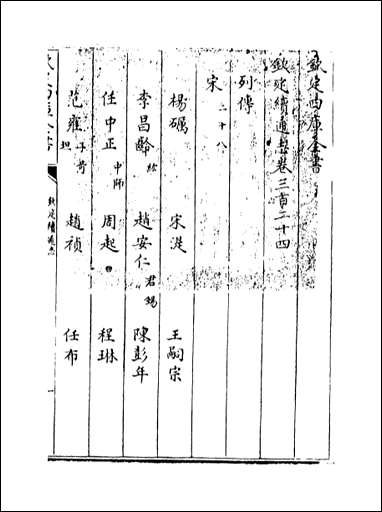 欽定四庫全書
欽定續通志卷三百二十四
列傳
宋二十八
楊礪 宋湜 王嗣宗
李昌齡紘 趙安仁君錫 陳彭年
任中正中師 周起 程琳
范雍子奇坦 趙禎 任布
欽定續通志